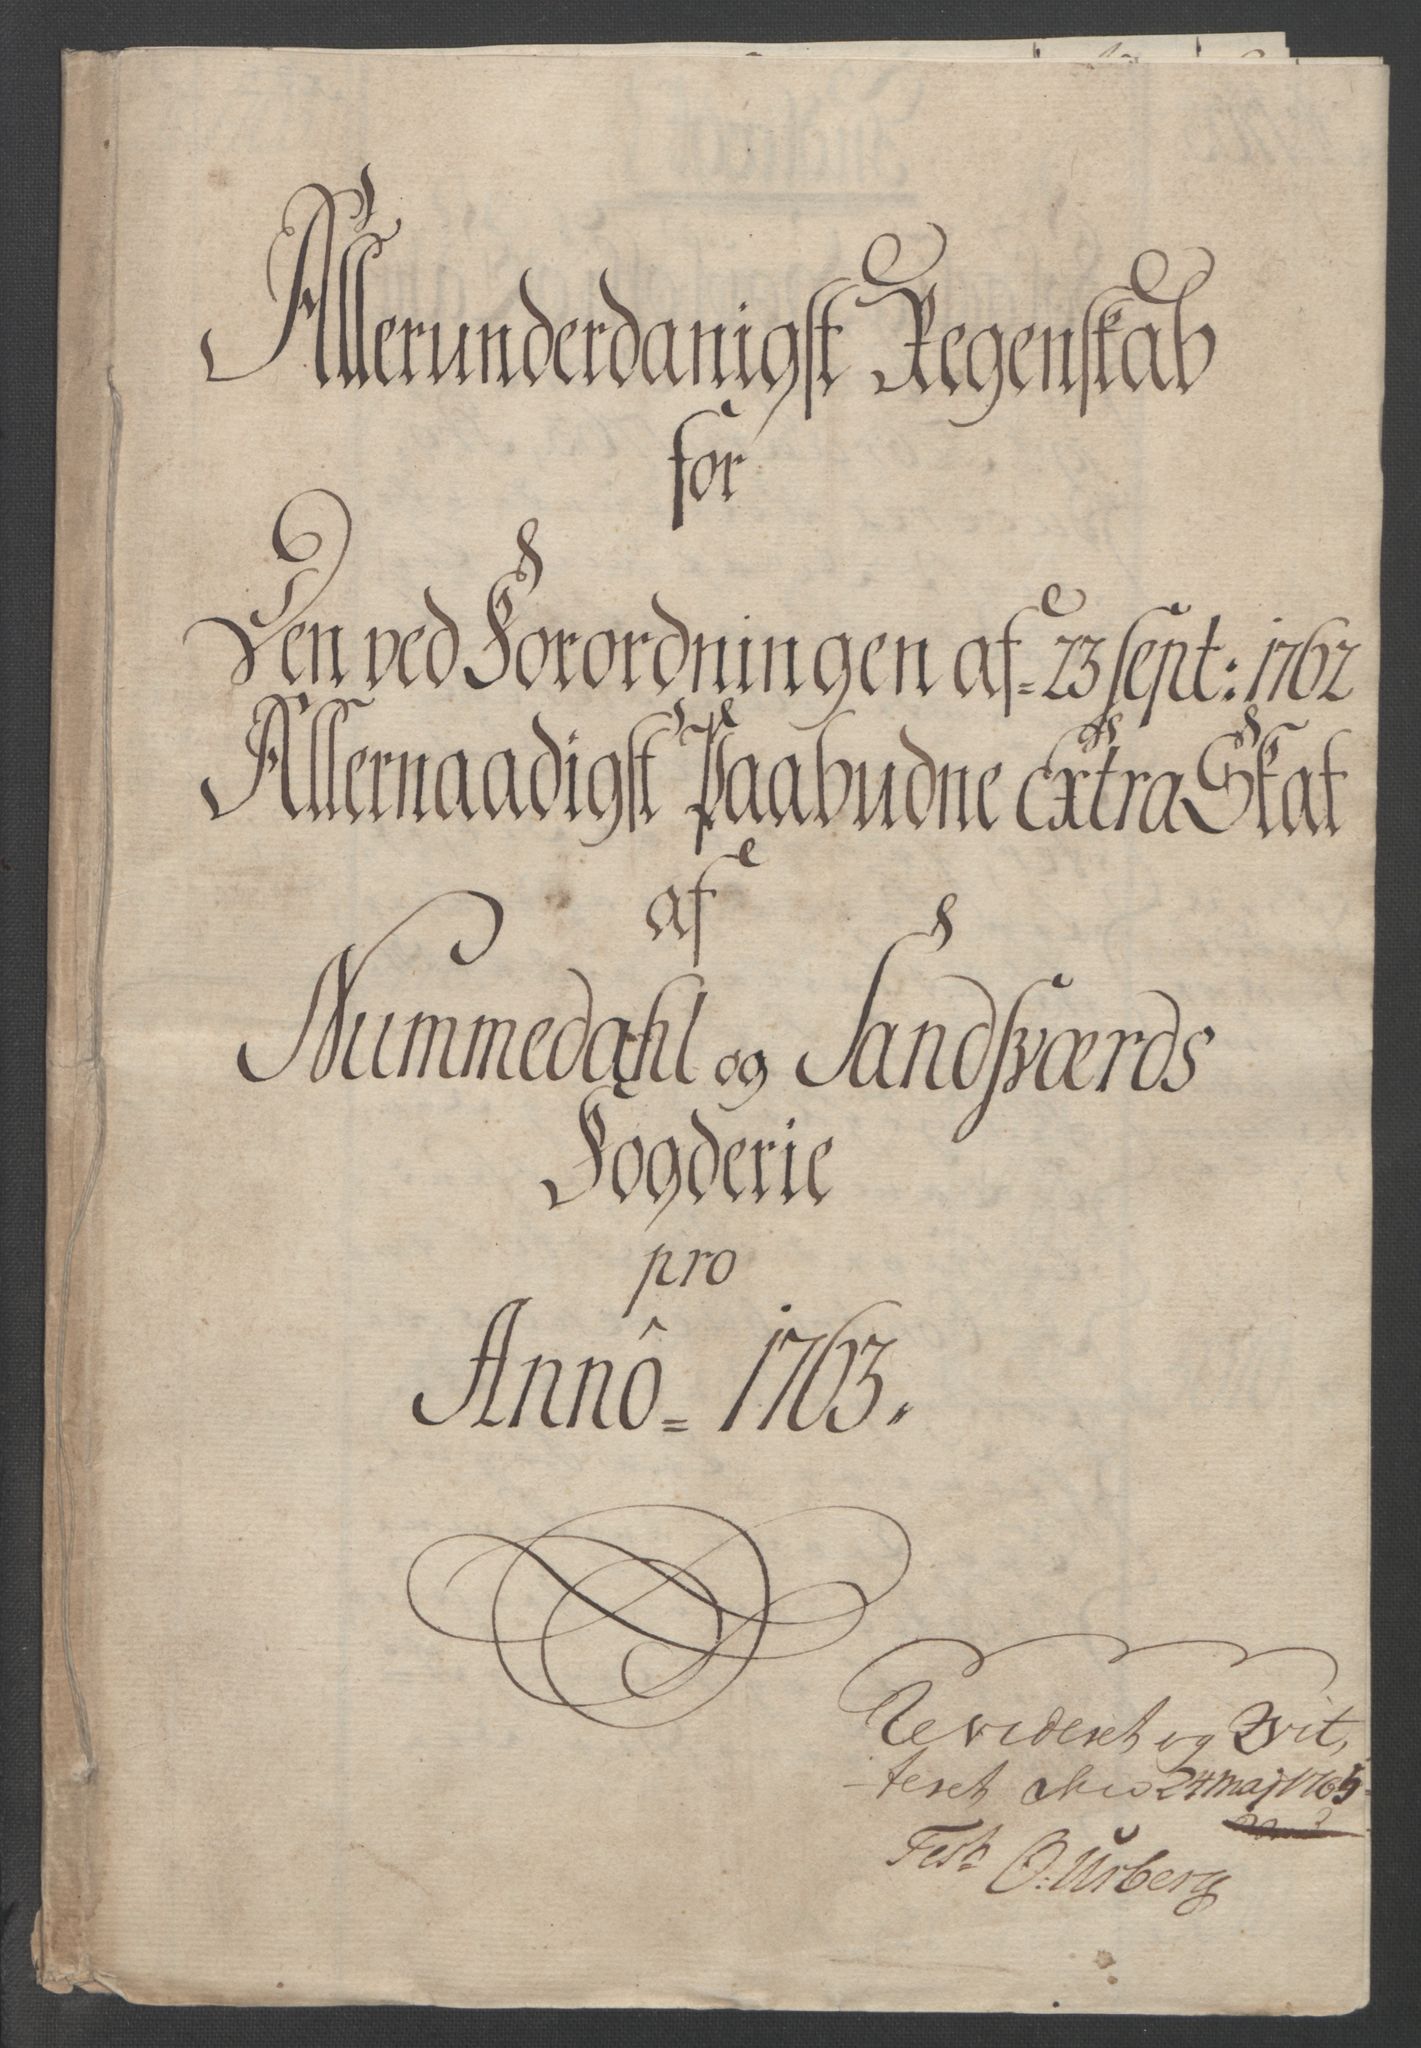 Allerunderdanigst Regenskab
for
Den ved Forordningen af = 23 sept: 1762
Allernaadigst Paabudne Extra Skat
af
Nummedahl og Sandsværds
Fogderie
pro
Annô = 1763.
Revideret og Qvit,
teret 24 Maj 1765
Test O: Urberg